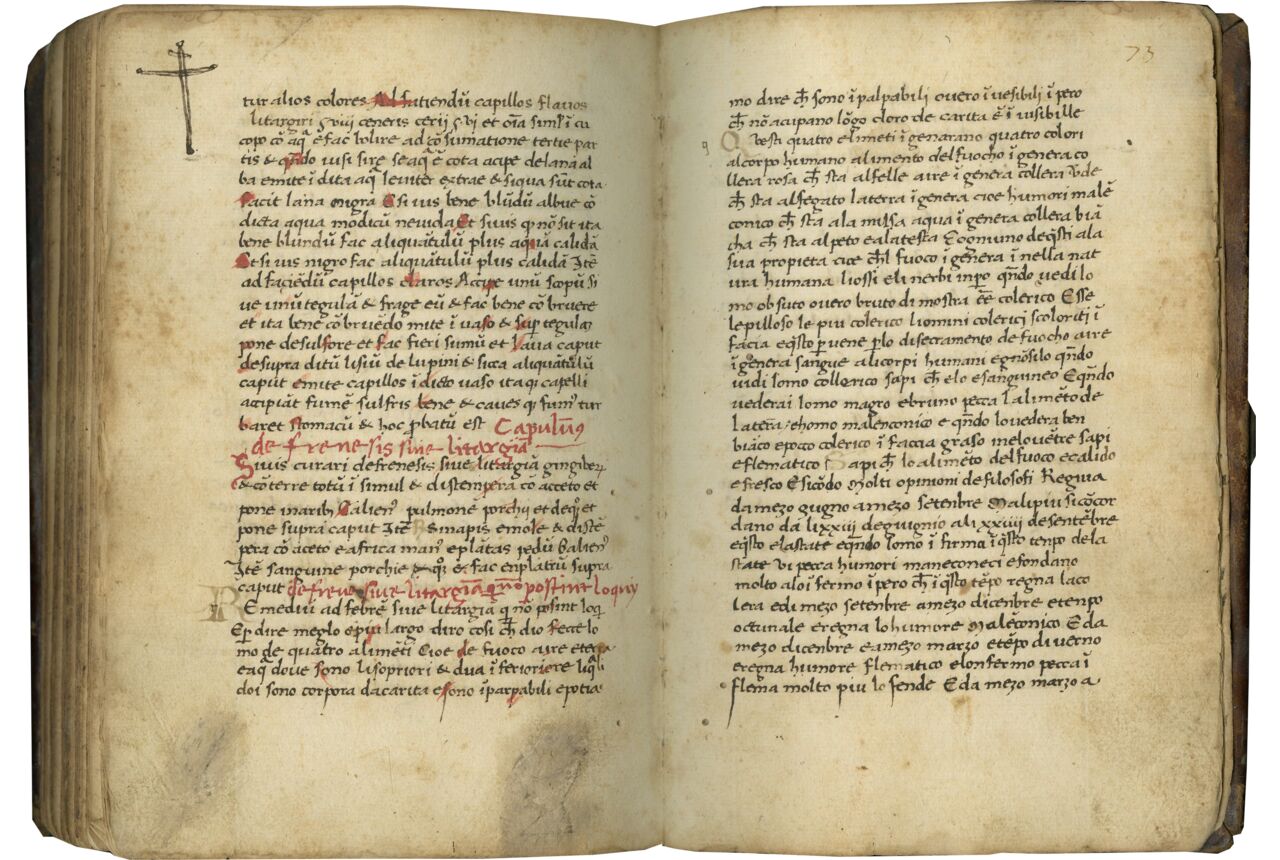 tur alios colores Ad faciendū capillos flavos
litargiri ʒ viii ceneris cerij ʒ vj et oīa siml' ī cu
copo cō aq̄ e fac bolire ad cōsumatione tertie par
tis & qn̄do visi sire se aq̄ e cota acipe de lana al
ba emite ī dita aq̄ leviter extrae & siqua sūt cota
facit lana nigra Et si vis bene blūdū albue cō
dicta aqua modicū nevida Et si vis q nō sit ita
bene blundū fac aliquātulū plus aquā calidā
Et si vis nigro fac aliquātulū plus calidā Itē
ad faciēdū capillos Accipe unū scopū si
ve unū tegulā & frage eū & fac bene cōbruere
et ita bene cōbruēdo mite ī vaso & sup tegulaz
pone de sulfore et fac fieri fumū et lava caput
desupra ditū lisiū de lupini & sicca aliquātulū
caput emite capillos ī dicto vaso ita q capelli
accipiāt fumē sulfris bene & caves q fum' tur
baret stomacū & hoc pbatū est Capulūs
de frenesis sive litargia
Si vis curari de frenesis sive litargiā gingiber
& cōterre totū ī simul & distempera cō acceto et
pone inarib Galien' pulmone porchi et deq̄ et
pone supra caput Itē Sinapis emole & distē
pera cō aceto e africa man' e plātas pedū Galien'
Itē sanguine porchie & q e fac enplatrū supra
caput de freno sive litargiā q nō postint loquy
Remediū ad febrē sive litargiā q nō posint loq
E p dire meglo e piu largo diro cosi ch̄ dio fece lo
mo de quatro alimēti Cioe de fuoco aire e terra
e aq̄ dove sono li sopriori & dua īferioriere liq̄li
doi sono corpora da carita e sono īparpabili e potia
73
mo dire ch̄ sono īpalpabili overo īvesibili īpero
ch̄ nō acupano lōgo cloro de carita è īvisibille
Questi quatro elimeti īgenarano quatro colori
al corpo humano alimento del fuocho īgenera co
llera rosa ch̄ sta al felle aire īgenera collera v̄de
ch̄ sta al fegato la terra īgenera cioe humori malē
conico ch̄ sta ala milsa aqua īgenera collera biā
cha ch̄ sta al peto e ala testa Eogniuno de q̄sti ala
sua propieta cioe ch̄l fuoco īgenera ī nella nat
ura humana li ossi e li nerbi inpo qn̄do vedi lo
mo obsuto overo bruto di mostra ēē colerico Esse
le pilloso le piu colerico li omini colerici scoloriti ī
facia e q̄sto pervene plo disecramento de fuocho aire
īgenera sangue ali corpi humani e gnōsilo qn̄do
vidi lomo collorico sapi ch̄ elo e sanguineo E qn̄do
vederai lomo magro e bruno pecca l alimēto de
la tera e homo malenconico e qn̄do lo vedera ben
biāco e poco colerico ī faccia graso melo vētre sapi
e flematico Sapi ch̄ lo alimēto del fuoco e calido
e fresco E sicōdo molti opinioni de filosofi Regnia
da mezo gugno a mezo setenbre Mali piu si cōcor
dano da li xxiiij de giugnio ali xxiiij de sentēbre
e q̄sto e la state e qn̄do lomo ī firma ī q̄sto tenpo de la
state vi pecca humori maneconeci e fondano
molto alo īfermo īpero ch̄ ī q̄sto tēpo regna la co
lera e di mezo setenbre a mezo dicenbre e tenpo
octunale e regna lo humore Malēconico E da
mezo dicenbre e a mezo marzo e tēpo di verno
e regna humore flematico e lonfermo pecca ī
flema molto piu lo fende E da mezo marzo a